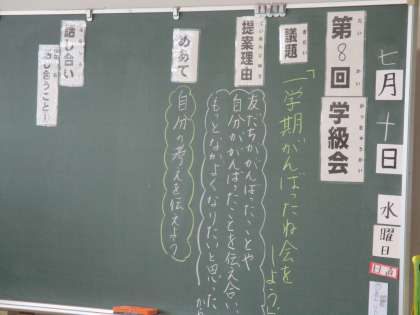 七月十日
水曜日
第8回学級会
議題
「一学期がんばったね会を
しよう
提案理由
友だちががんばったことや
自分ががんばったことを伝え合い、
もっとなかよくなりたいと思った
から
めあて
自分の考えを伝えよう
話し合い
話し合うこと①